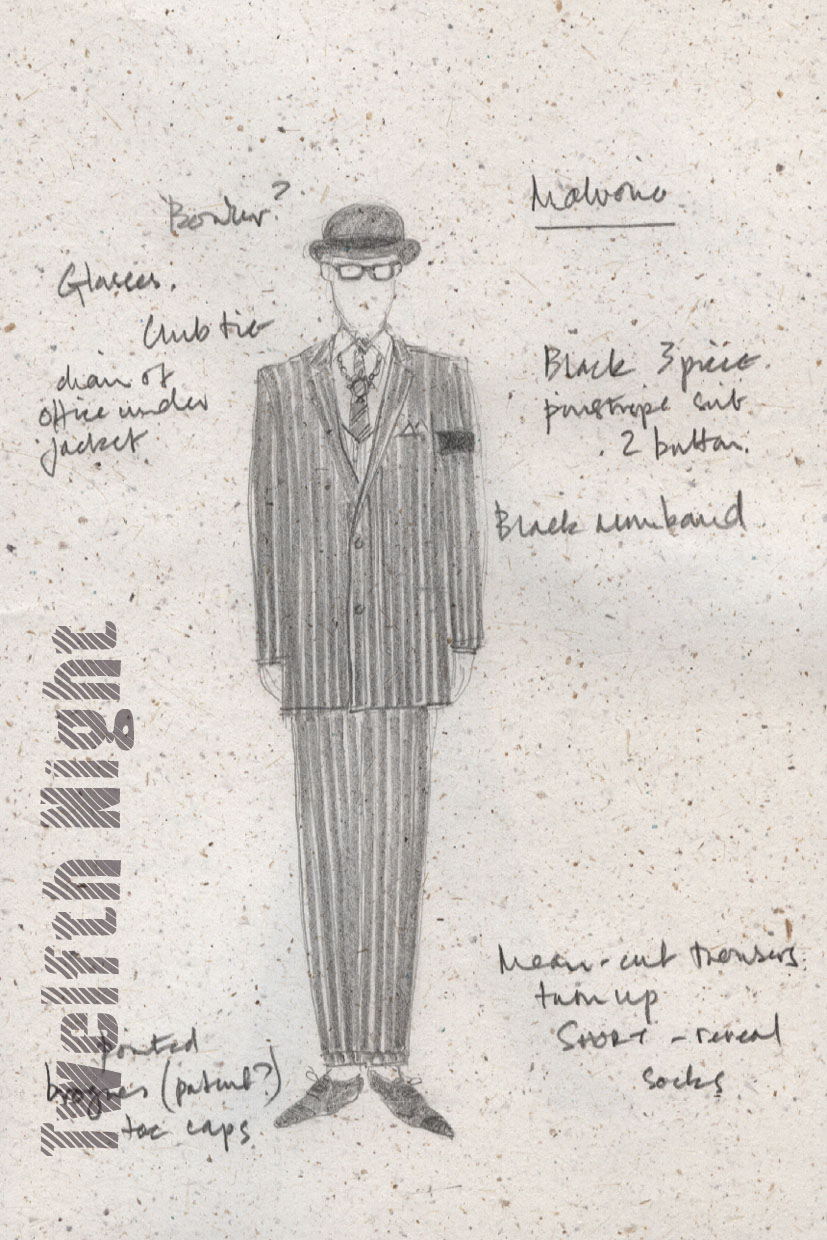 Malvolio
Bowler?
Glasses.
Club tie
chain of
office under
jacket
Black 3 piece
pinstripe suit
. 2 button.
Black armband
Twelfth Night
Mean-cut trousers
turn up
SHORT - reveal
socks
pointed
brogues (patent?)
toe caps